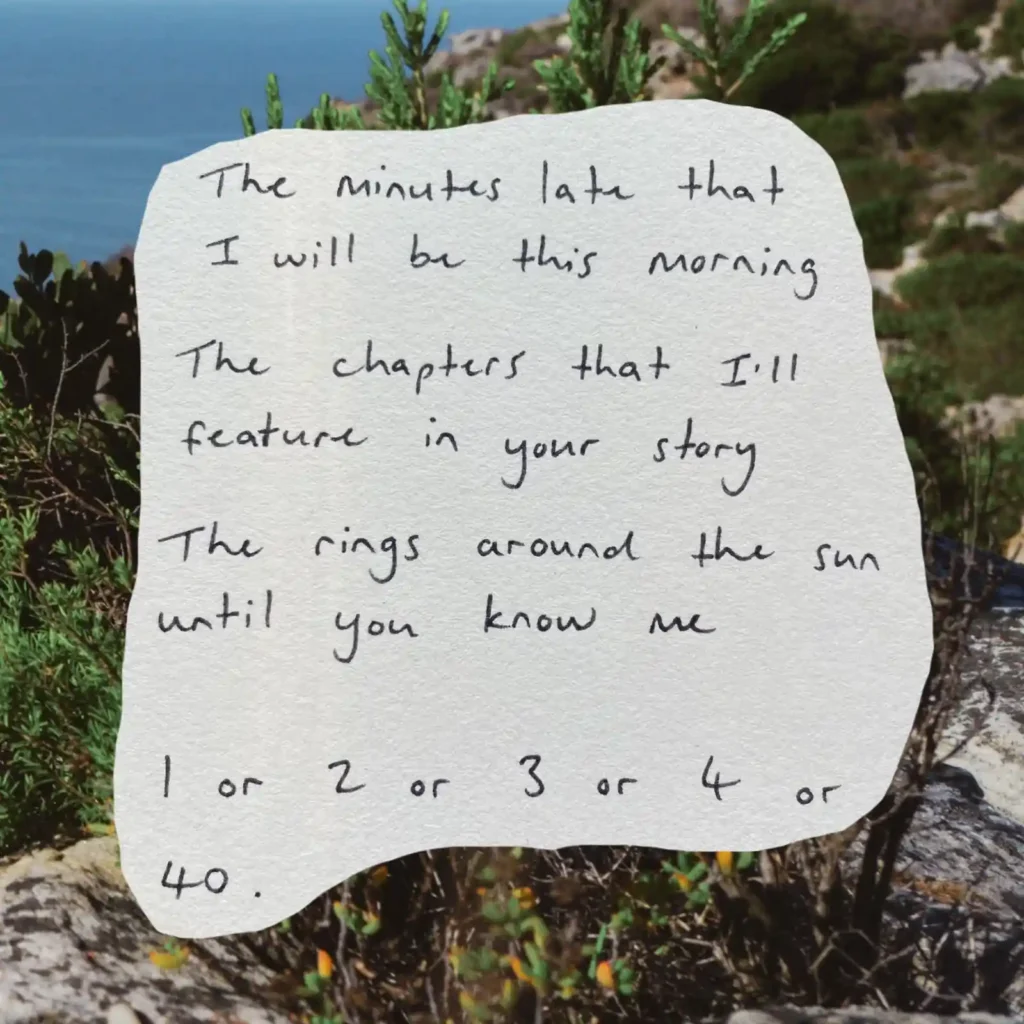 The minutes late that
I will be this morning
The chapters that I'll
feature in your story
The rings around the sun
until you know me
1 or 2 or 3 or 4 or
40.